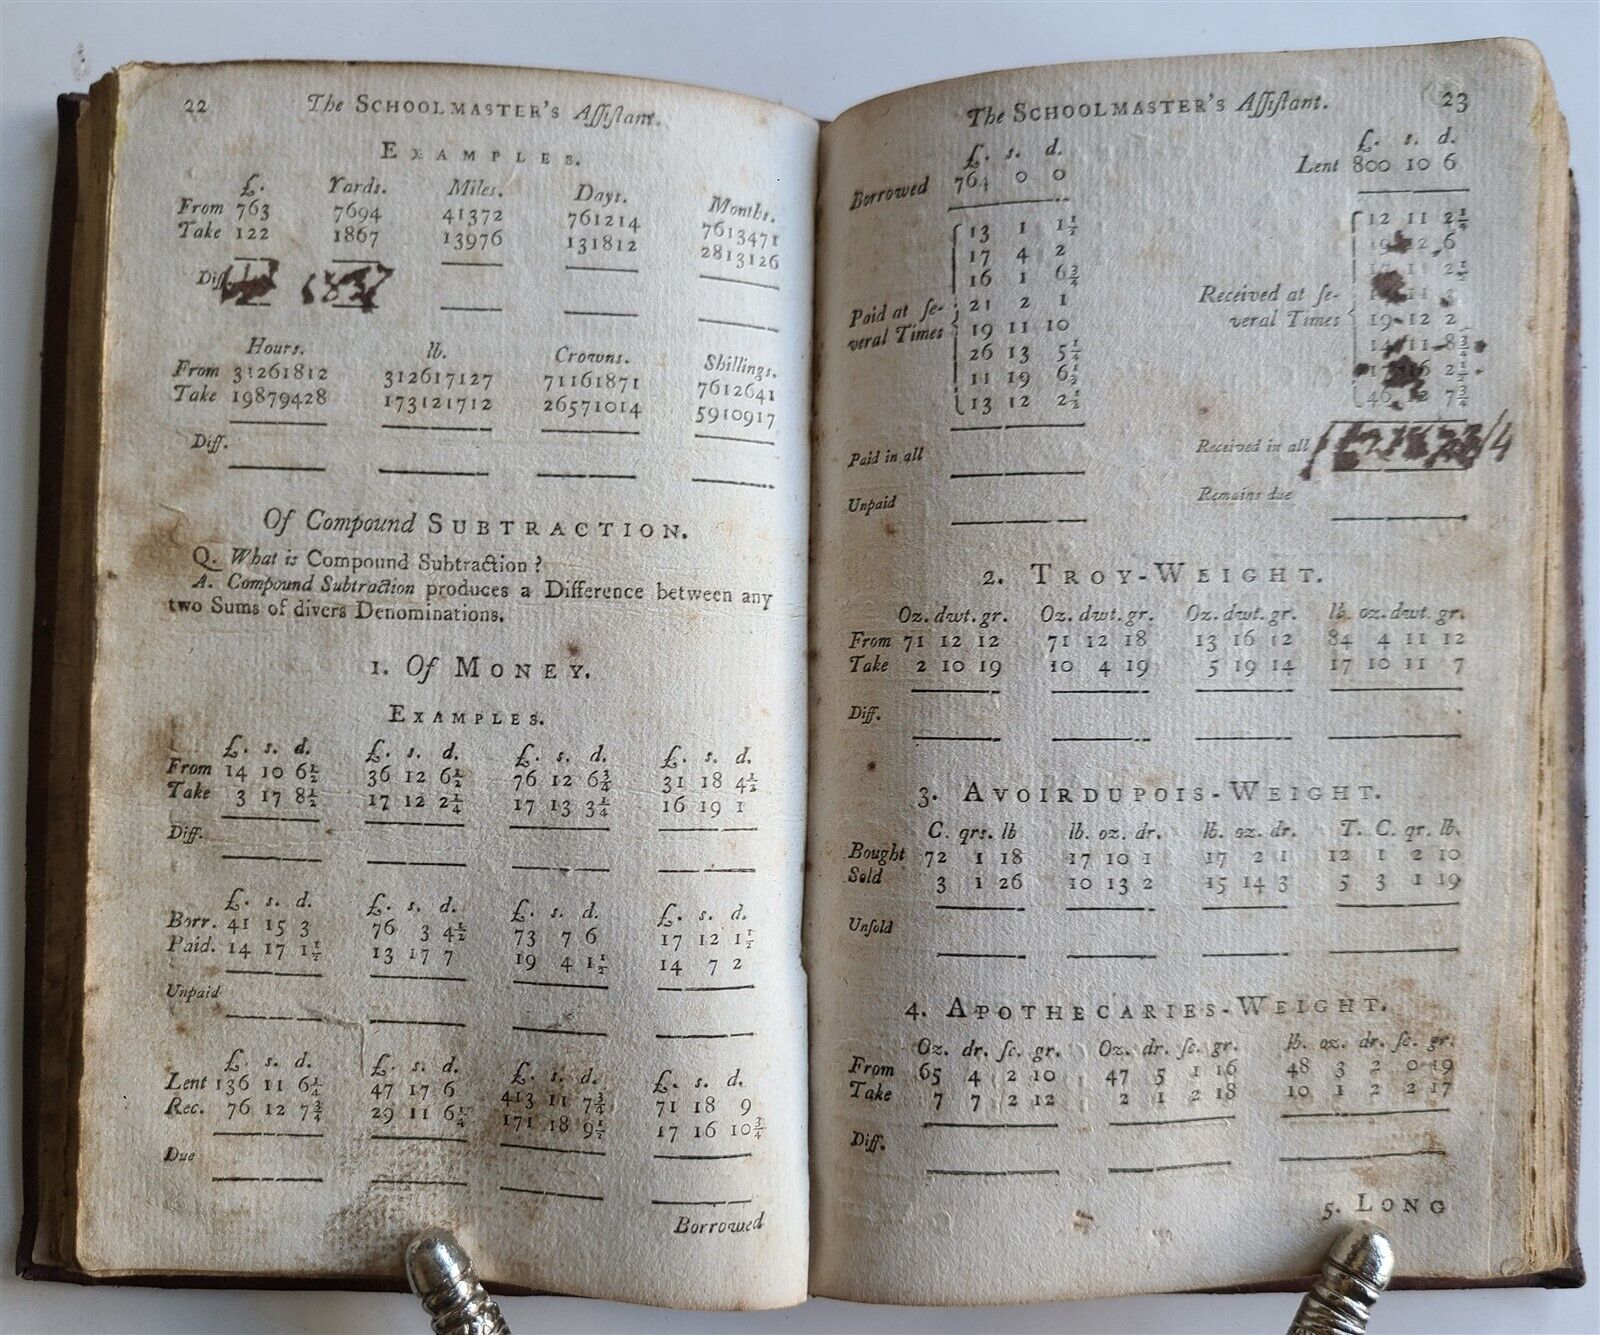 22 The SCHOOLMASTER'S Aſſiſtant.
EXAMPLES.
£. Yards. Miles. Days. Months.
From 763 7694 41372 761214 7613471
Take 122 1867 13976 131812 2813126
Diff.
Hours. lb. Crowns. Shillings.
From 31261812 312617127 71161871 7612641
Take 19879428 173121712 26571014 5910917
Diff.
Of Compound SUBTRACTION.
Q. What is Compound Subtraction?
A. Compound Subtraction produces a Difference between any
two Sums of divers Denominations.
1. Of MONEY.
EXAMPLES.
£. s. d. £. s. d. £. s. d. £. s. d.
From 14 10 6½ 36 12 6½ 76 12 6¾ 31 18 4½
Take 3 17 8½ 17 12 2¼ 17 13 3¼ 16 19 1
Diff.
£. s. d. £. s. d. £. s. d. £. s. d.
Borr. 41 15 3 76 3 4½ 73 7 6 17 12 1½
Paid. 14 17 1½ 13 17 7 19 4 1½ 14 7 2
Unpaid
£. s. d. £. s. d. £. s. d. £. s. d.
Lent 136 11 6¼ 47 17 6 413 11 7¾ 71 18 9
Rec. 76 12 7¾ 29 11 6¼ 171 18 9½ 17 16 10¾
Due
Borrowed
The SCHOOLMASTER'S Aſſiſtant. 23
£. s. d.
Borrowed 764 0 0
13 1 1½
17 4 2
16 1 6¾
Paid at ſe- 21 2 1
veral Times 19 11 10
26 13 5¼
11 19 6½
13 12 2½
Paid in all
Unpaid
£. s. d.
Lent 800 10 6
12 11 2¼
12 6
11 2½
Received at ſe- 11 3
veral Times 19 12 2
14 11 8¾
17 16 2½
46 12 7¾
Received in all
Remains due
2. TROY-WEIGHT.
Oz. dwt. gr. Oz. dwt. gr. Oz. dwt. gr. lb. oz. dwt. gr.
From 71 12 12 71 12 18 13 16 12 84 4 11 12
Take 2 10 19 10 4 19 5 19 14 17 10 11 7
Diff.
3. AVOIRDUPOIS-WEIGHT.
C. qrs. lb lb. oz. dr. lb. oz. dr. T. C. qr. lb.
Bought 72 1 18 17 10 1 17 2 1 12 1 2 10
Sold 3 1 26 10 13 2 15 14 3 5 3 1 19
Unſold
4. APOTHECARIES-WEIGHT.
Oz. dr. ſc. gr. Oz. dr. ſc. gr. lb. oz. dr. ſc. gr.
From 65 4 2 10 47 5 1 16 48 3 2 0 19
Take 7 7 2 12 2 1 2 18 10 1 2 2 17
Diff.
5. LONG